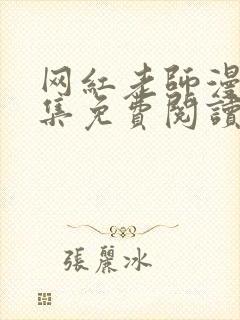 网紅老師漫
集免費閱讀
張麗冰